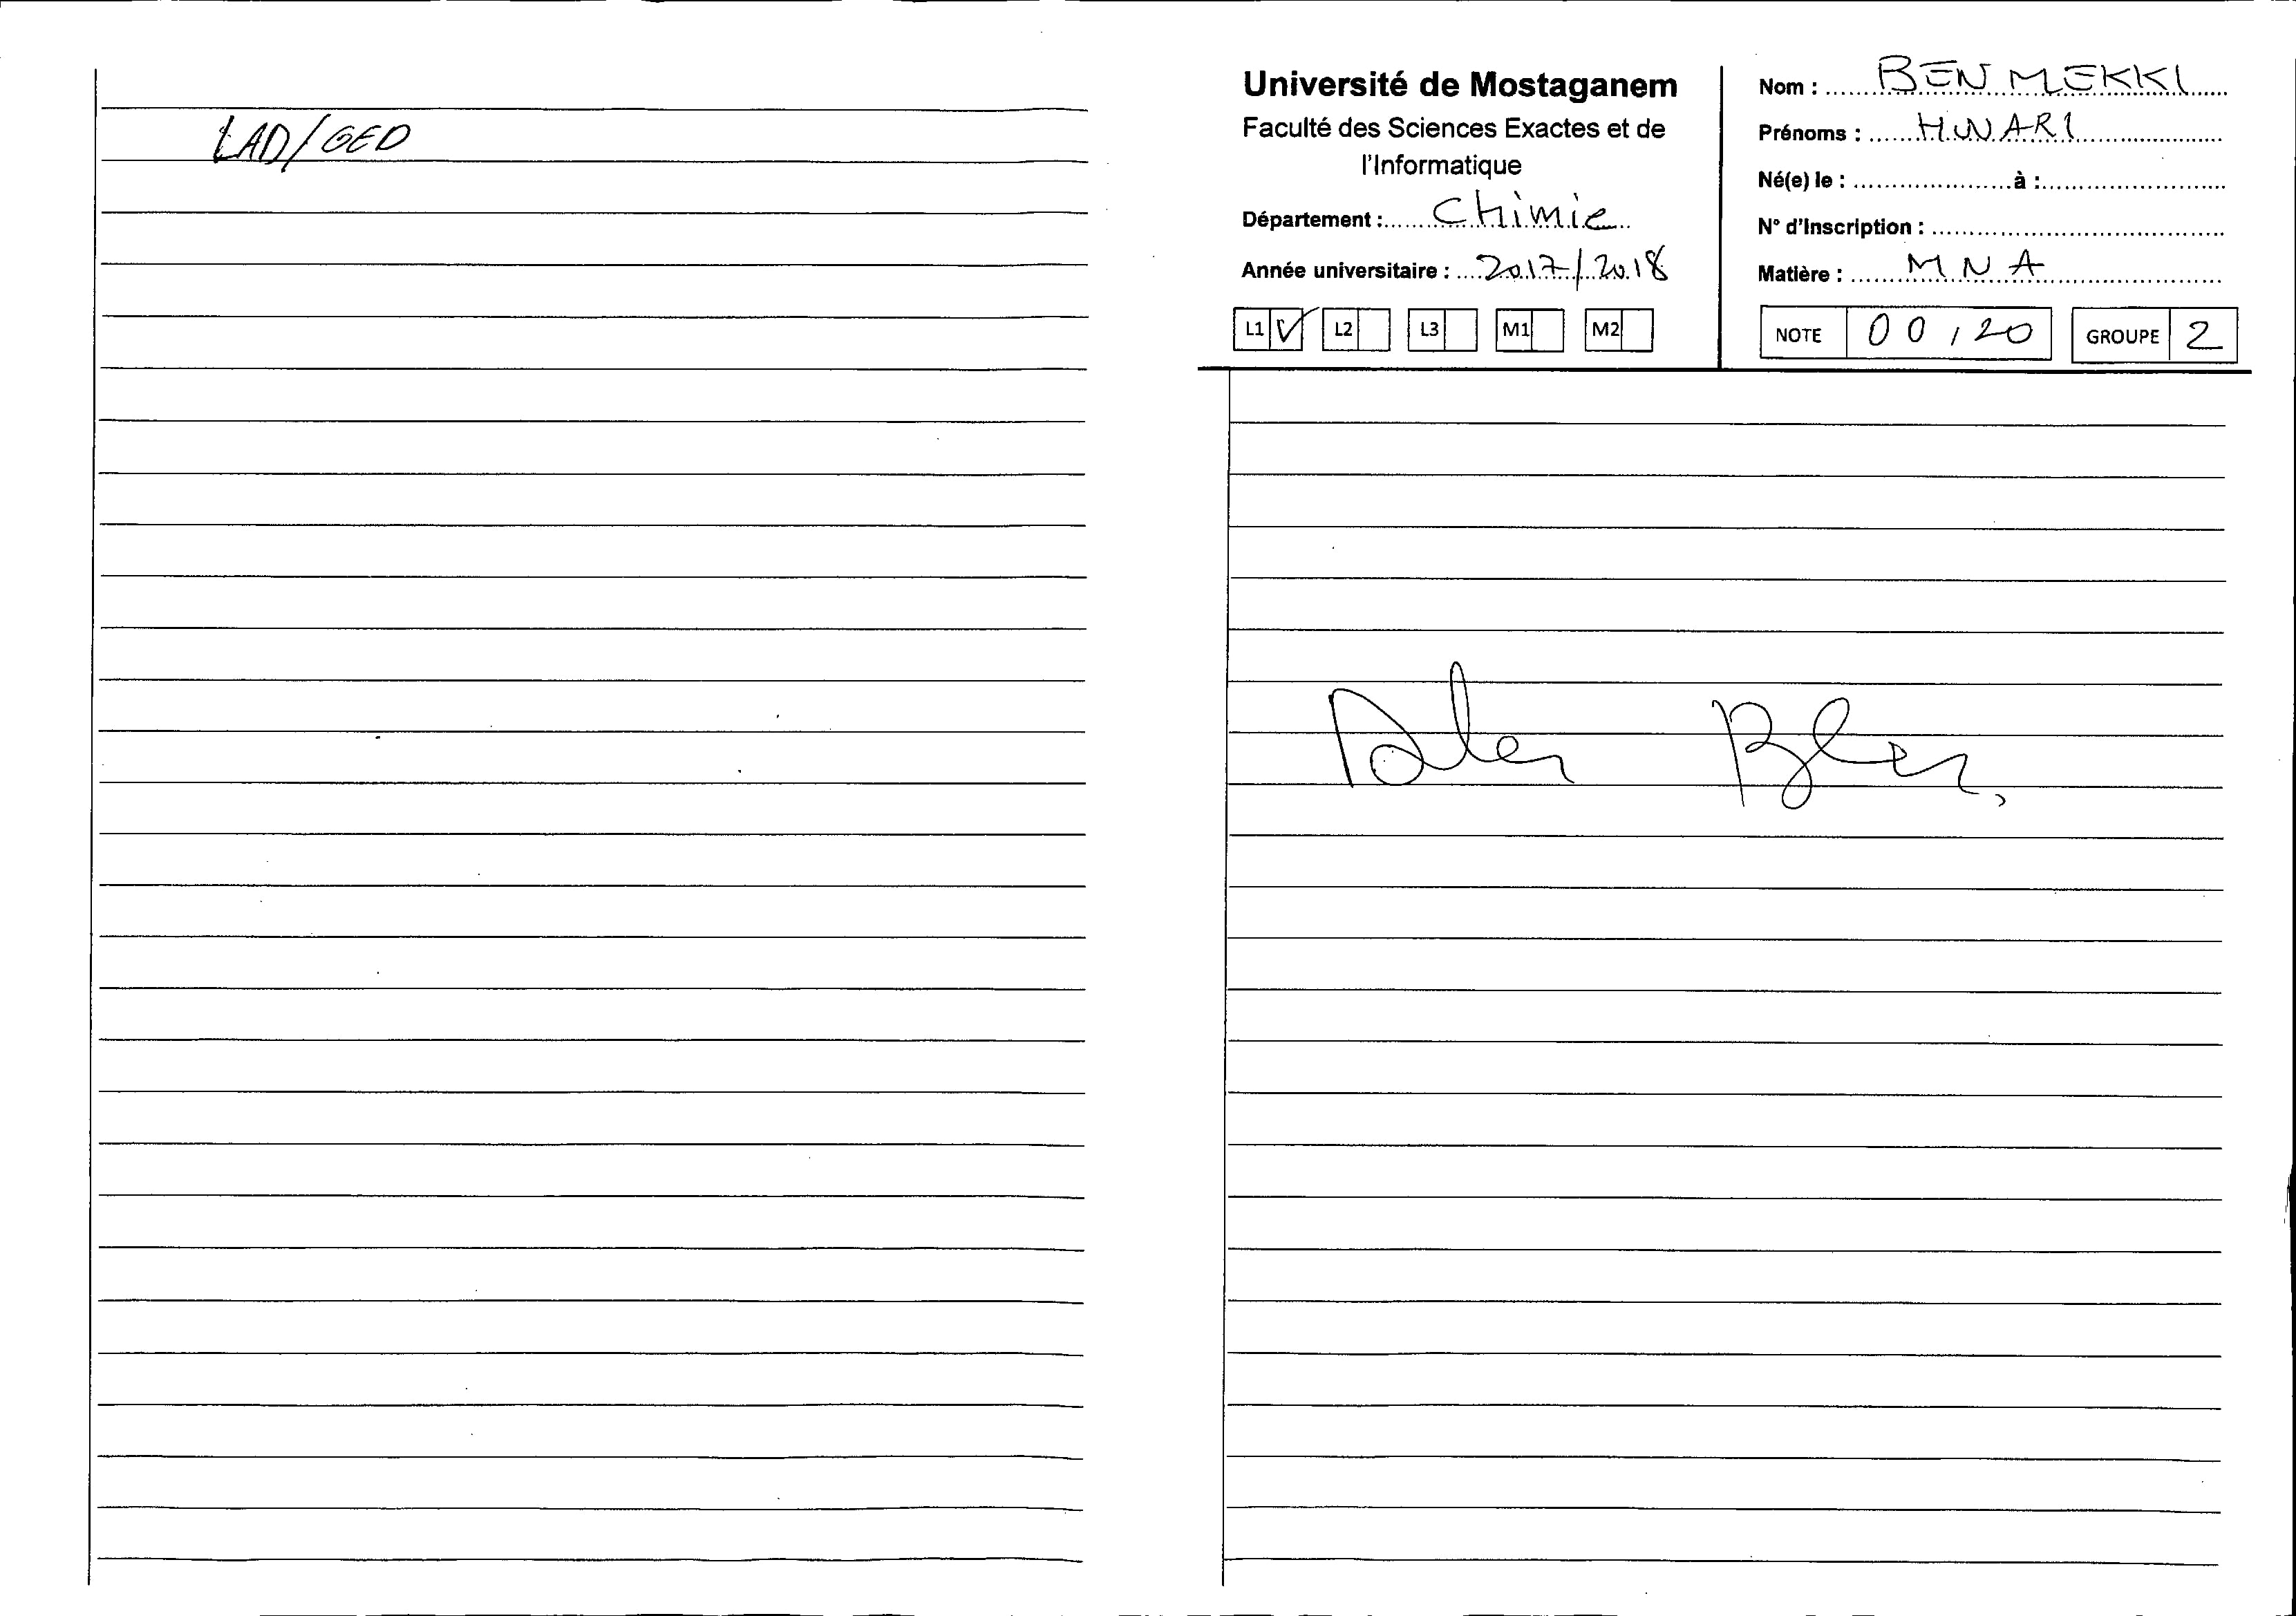 LAD/GED
Université de Mostaganem
Faculté des Sciences Exactes et de
l'Informatique
Département : Chimie
Année universitaire : 2017/2018
L1 V L2 L3 M1 M2
Nom : BEN MEKKI
Prénoms : HWARI
Né(e) le : à :
N° d'Inscription :
Matière : M N A
NOTE 00,20 GROUPE 2